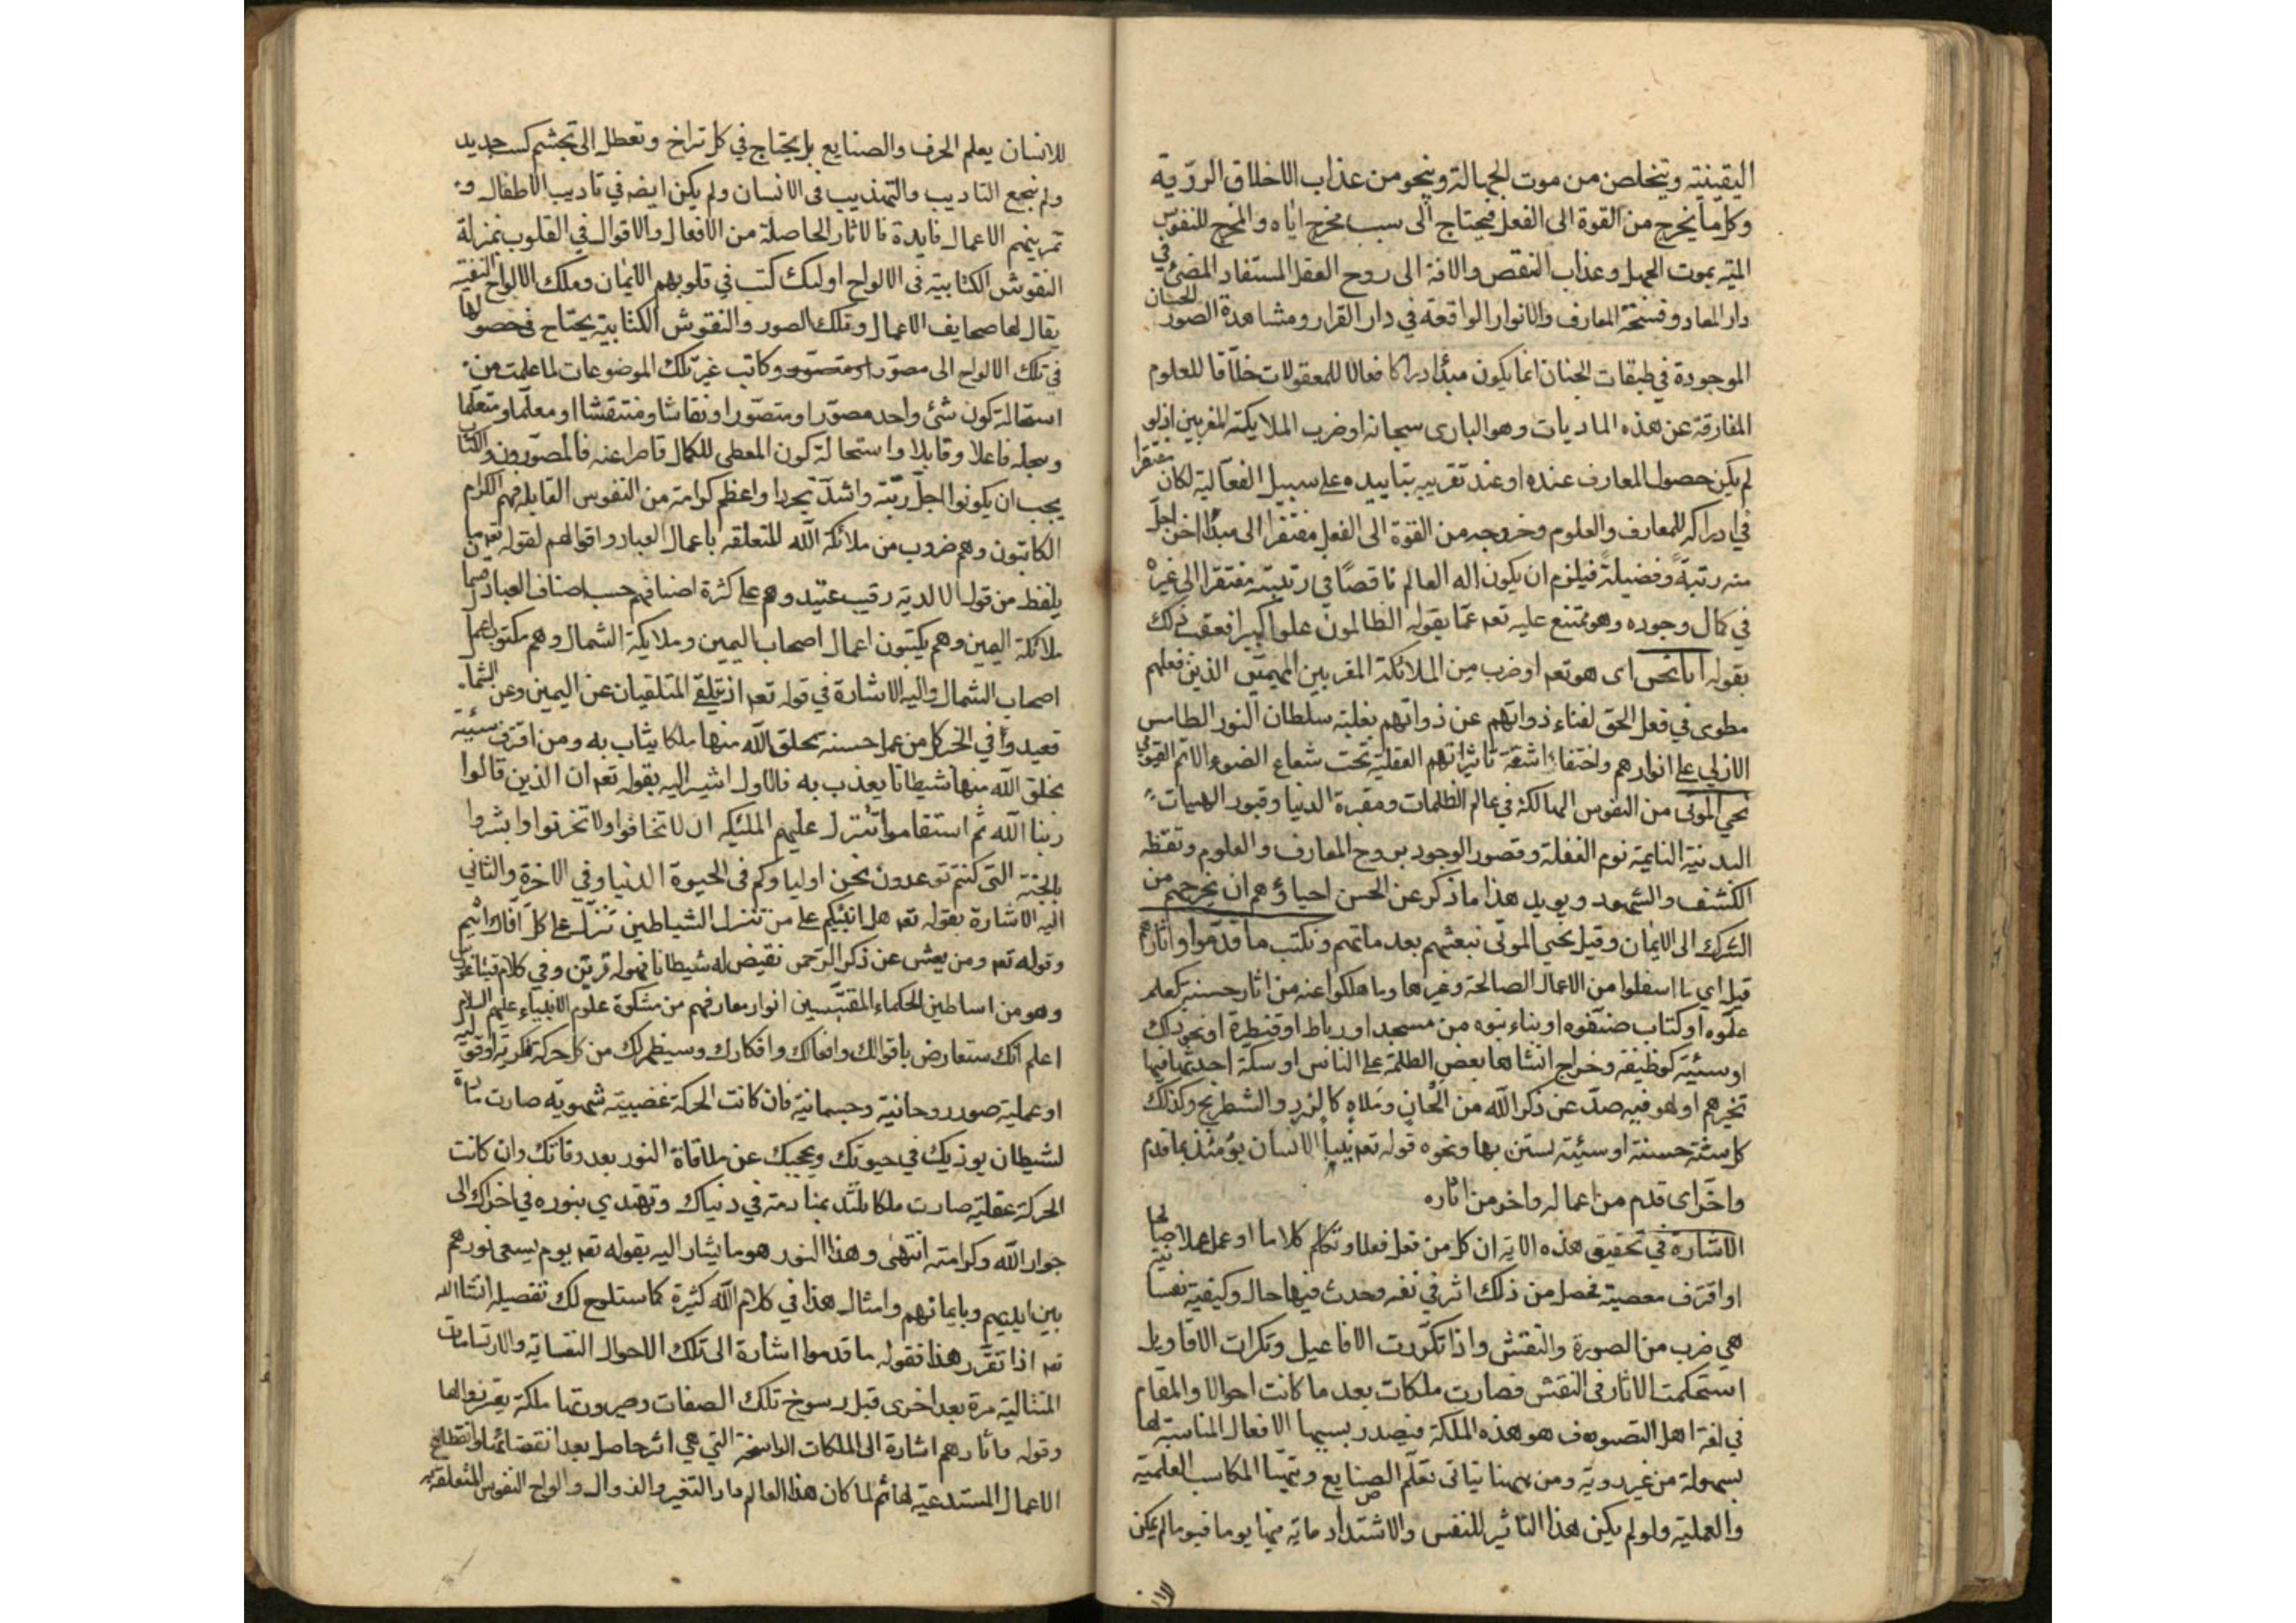 اليقينية ويتخلص من موت الجهالة وينجو من عذاب الاخلاق الردية
وكل ما يخرج من القوة الى الفعل فيحتاج الى سبب مخرج اياه والمخرج للنفوس
الميتة بموت الجهل وعذاب النقص والافة الى روح العقل المستفاد المضئ في
دار المعاد وفسحة المعارف والانوار الواقعة في دار القرار ومشاهدة الصور الحسان
الموجودة في طبقات الجنان انما يكون مبدأ دراكا فعالا للمعقولات خلاقا للعلوم
المفارقة عن هذه الماديات وهو البارى سبحانه او ضرب الملايكة المقربين اذ لو
لم يكن حصول المعارف عنده او عند تقريبه بتاييده على سبيل الفعالية لكان مفتقرا
في ادراكه للمعارف والعلوم وخروجه من القوة الى الفعل مفتقرا الى مبدأ اخر اجل
منه رتبة وفضيلة فيلزم ان يكون اله العالم ناقصا في رتبته مفتقرا الى غيره
في كمال وجوده وهو ممتنع عليه تعه عما يقوله الظالمون علوا كبيرا فعقب ذلك
بقوله انا نحن اى هو تعه او ضرب من الملائكة المقربين المهيمين الذين فعلهم
مطوى في فعل الحق لفناء ذواتهم عن ذواتهم بغلبة سلطان النور الطامس
الازلي على انوارهم واختفاء اشعة تاثيراتهم العقلية تحت شعاع الضوء الاتم القيومي
نحي الموتى من النفوس الهالكة في عالم الظلمات ومقبرة الدنيا وقبور الهيات
البدنية النايمة نوم الغفلة وقصور الوجود بروح المعارف والعلوم وتقظه
الكشف والشهود ويويد هذا ما ذكر عن الحسن احياؤهم ان يخرجهم من
الشرك الى الايمان وقيل نحيي الموتى نبعثهم بعد ماتهم ونكتب ما قدموا واثارهم
قيل اي ما اسفلوا من الاعمال الصالحة وغيرها وما هلكوا عنه من اثار حسنة كعلم
علموه او كتاب صنفوه او بناء بنوه من مسجد او رباط او قنطرة او نحو ذلك
او سيئة كوظيفة وخراج انشاها بعض الظلمة على الناس او سكة احدثها فيها
تخيرهم او لهو فيه صد عن ذكر الله من الحان وملاه كالنرد والشطرنج وكذلك
كل سنة حسنة او سيئة يستن بها ونحوه قوله تعه ينبأ الانسان يومئذ بما قدم
واخر اى قدم من اعماله واخر من اثاره
الاشارة في تحقيق هذه الاية ان كل من فعل فعلا او تكلم كلاما او عمل عملا صالحا
او اقترف معصية فحصل من ذلك اثر في نفسه وحدث فيها حال وكيفية نفسانية
هي ضرب من الصورة والنقش واذا تكررت الافاعيل وتكرات الاقاويل
استحكمت الاثار في النقش فصارت ملكات بعد ما كانت احوالا والمقام
في لغة اهل التصوف هو هذه الملكة فيصدر بسببها الافعال المناسبة لها
بسهولة من غير روية ومن ههنا يتاتى تعلم الصنايع وتهيا المكاسب العلمية
والعملية ولو لم يكن هذا التاثير للنفس والاشتداد مايه فيها يوما فيوما لم يمكن
للانسان يعلم الحرف والصنايع بل يحتاج في كل تراخ وتعطل الى تجشم كسب جديد
ولم ينجع التاديب والتهذيب في الانسان ولم يكن ايضه في تاديب الاطفال و
تمرينهم الاعمال فايدة فالاثار الحاصلة من الافعال والاقوال في القلوب بمنزلة
النقوش الكتابية في الالواح اولئك كتب في قلوبهم الايمان وملك الالواح النفسية
يقال لها صحايف الاعمال وتلك الصور والنقوش الكتابية يحتاج في حصولها
في تلك الالواح الى مصور وكاتب غير تلك الموضوعات لما علمت من
استحالة كون شئ واحد مصورا ومتصورا او نقاشا ومنتقشا او معلما ومتعلما
وبجله فاعلا وقابلا واستحالة كون المعطى للكمال قاصرا عنه فالمصورون والكتاب
يجب ان يكونوا اجل رتبة واشد تجردا واعظم كرامة من النفوس القابلة فهم الكرام
الكاتبون وهم ضروب من ملائكة الله المتعلقة باعمال العباد واقوالهم لقوله تعه ما
يلفظ من قول الا لديه رقيب عتيد وهم على كثرة اصنافهم حسب اصناف العباد
ملائكة اليمين وهم يكتبون اعمال اصحاب اليمين وملايكة الشمال وهم يكتبون اعمال
اصحاب الشمال واليه الاشارة في قوله تعه اذ يتلقى المتلقيان عن اليمين وعن الشمال
قعيد وفي الخبر كل من عمل حسنة يخلق الله منها ملكا يثاب به ومن اقترف سيئة
يخلق الله منها شيطانا يعذب به فالاول اشير اليه بقوله تعه ان الذين قالوا
ربنا الله ثم استقاموا تتنزل عليهم الملئكة ان لا تخافوا ولا تحزنوا وابشروا
بالجنة التى كنتم توعدون نحن اولياوكم فى الحيوة الدنيا وفي الاخرة والثاني
اليه الاشارة بقوله تعه هل انبئكم على من تنزل الشياطين تنزل على كل افاك اثيم
وقوله تعه ومن يعش عن ذكر الرحمن نقيض له شيطانا فهو له قرين وفي كلام فيثاغورس
وهو من اساطين الحكماء المقتبسين انوار معارفهم من مشكوة علوم الانبياء عليهم السلام
اعلم انك ستعارض باقوالك وافعالك وافكارك وسيظهر لك من كل حركة فكرية او قولية
او عملية صور روحانية وجسمانية فان كانت الحركة غضبية شهوية صارت مادة
لشيطان يوذيك في حيوتك ويحجبك عن ملاقاة النور بعد وفاتك وان كانت
الحركة عقلية صارت ملكا تلتذ بمنادمته في دنياك وتهتدي بنوره في اخراك الى
جوار الله وكرامته انتهى وهذا النور هو ما يشار اليه بقوله تعه يوم يسعى نورهم
بين ايديهم وبايمانهم وامثال هذا في كلام الله كثيرة كما ستلوح لك تفصيله انشاالله
تعه اذا تقرر هذا فقوله ما قدموا اشارة الى تلك الاحوال النفسانية والارتسامات
المتتالية مرة بعد اخرى قبل رسوخ تلك الصفات وصيرورتها ملكة
وقوله واثارهم اشارة الى الملكات الراسخة التي هي اثر حاصل بعد انقضائها وانقطاع
الاعمال المستدعية لها ثم لما كان هذا العالم دار التغير والزوال والواح النفوس المتعلقة به